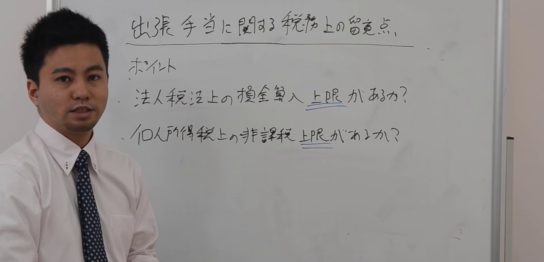 出張手当に関する税務上の留意点
ポイント
・法人税法上の損金算入上限があるか?
・個人所得税上の非課税上限があるか?